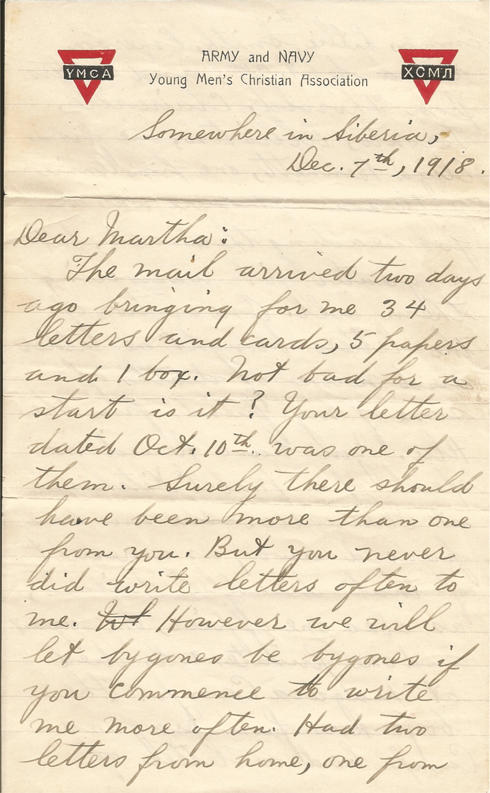 ARMY and NAVY
YMCA
Young Men's Christian Association
ХСМЛ
Somewhere in Siberia,
Dec. 7th, 1918.
Dear Martha:
The mail arrived two days
ago bringing for me 34
letters and cards, 5 papers
and 1 box. Not bad for a
start is it? Your letter
dated Oct. 10th was one of
them. Surely there should
have been more than one
from you. But you never
did write letters often to
me. However we will
let bygones be bygones if
you commence to write
me more often. Had two
letters from home, one from